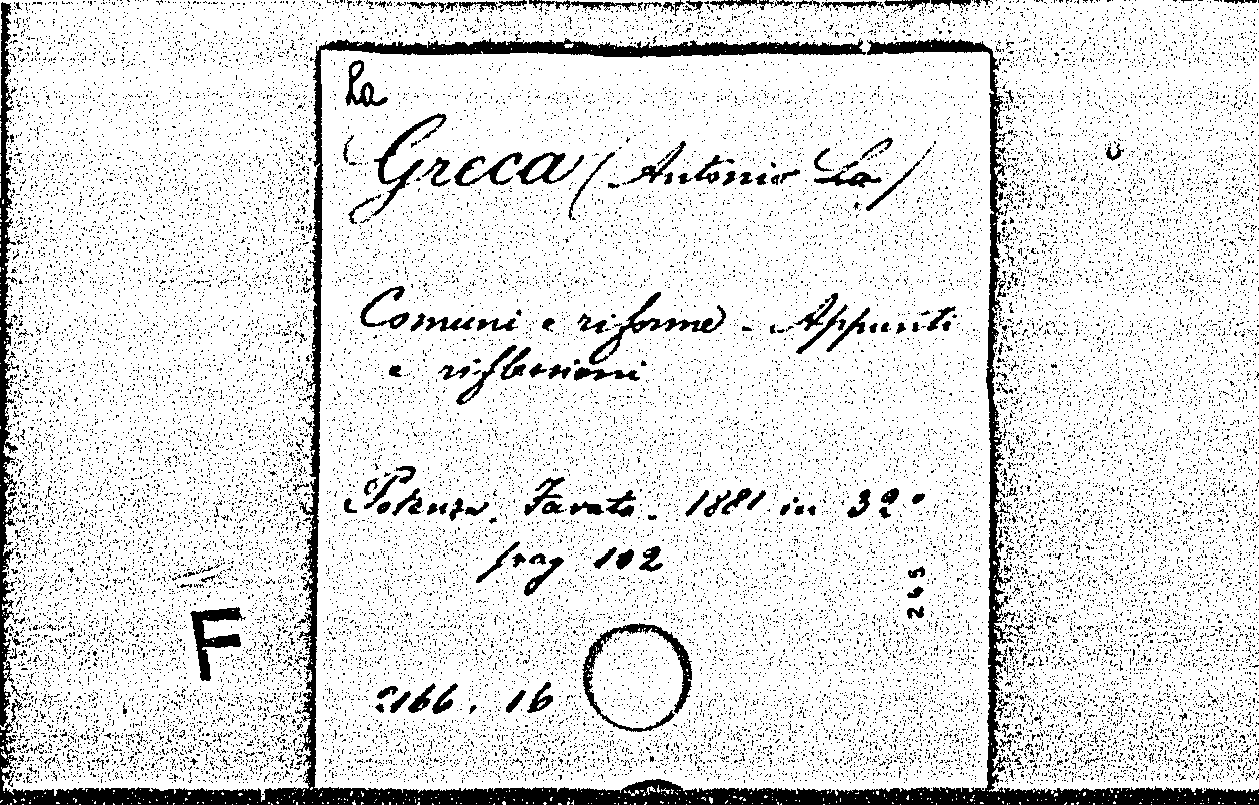 La
Greca (Antonio La)
Comuni e riforme - Appunti
e riflessioni
Potenza. Favata. 1881 in 32°
pag 102
245
F
2166. 16